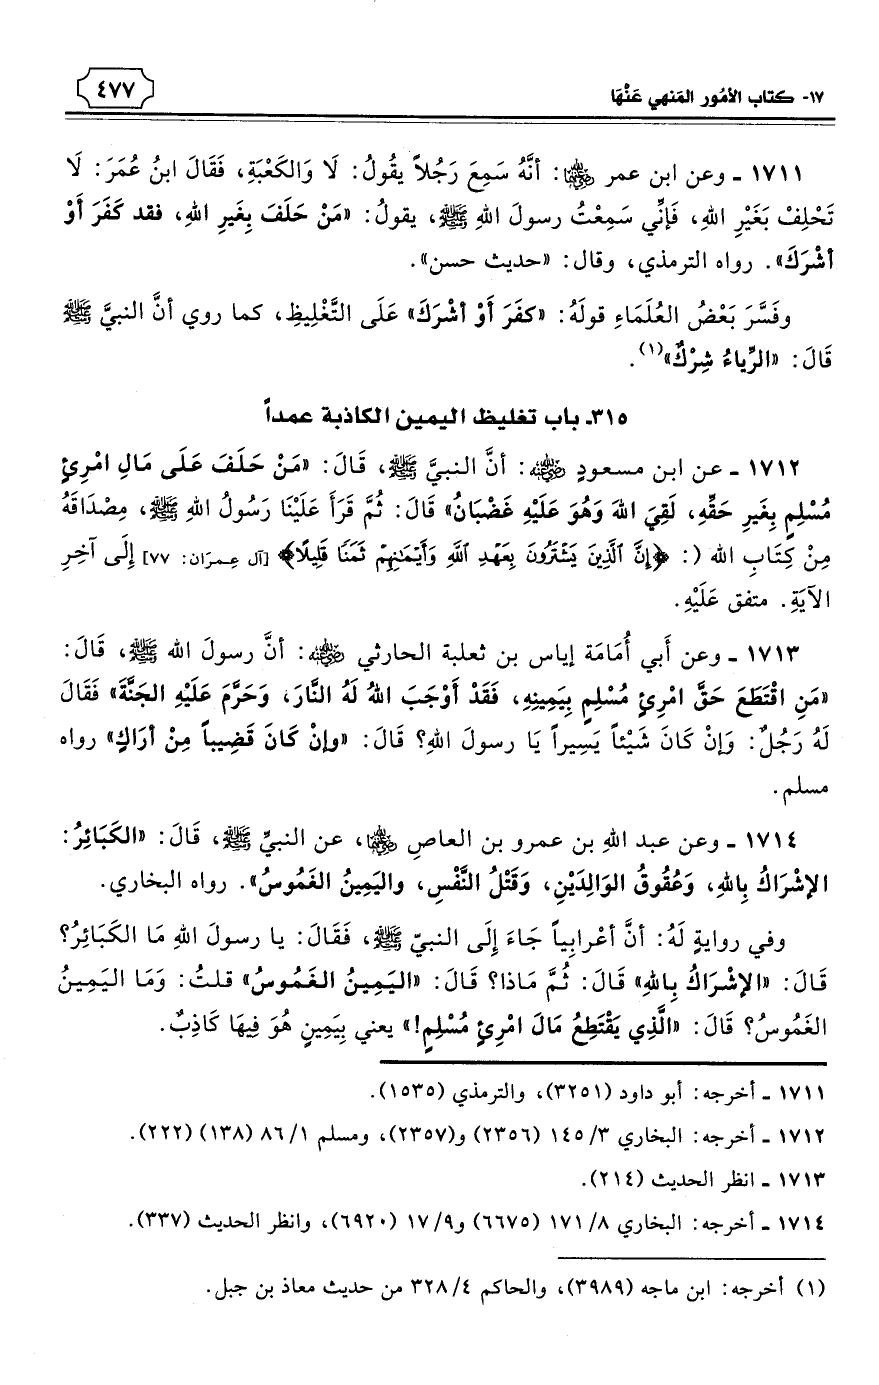 ١٧- كتاب الأمُور المَنهي عَنْهَا
٤٧٧
١٧١١ ـ وعن ابن عمر ﵄: أنَّهُ سَمِعَ رَجُلاً يقُولُ: لَا وَالكَعْبَةِ، فَقَالَ ابنُ عُمَرَ: لَا
تَحْلِفْ بَغَيْرِ اللهِ، فَإنِّي سَمِعْتُ رسولَ اللهِ ﷺ، يقولُ: «مَنْ حَلَفَ بِغَيرِ اللهِ، فقد كَفَرَ أَوْ
أشْرَكَ». رواه الترمذي، وقال: «حديث حسن».
وفَسَّرَ بَعْضُ العُلَمَاءِ قولَهُ: «كفَرَ أَوْ أشْرَكَ» عَلَى التَّغْلِيظِ، كما روي أنَّ النبيَّ ﷺ
قَالَ: «الرِّياءُ شِرْكٌ»(١).
٣١٥ـ باب تغليظ اليمين الكاذبة عمداً
١٧١٢ ـ عن ابن مسعودٍ ﵁: أنَّ النبيَّ ﷺ، قَالَ: «مَنْ حَلَفَ عَلَى مَالِ امْرِئٍ
مُسْلِمٍ بِغَيرِ حَقِّهِ، لَقِيَ اللهَ وَهُوَ عَلَيْهِ غَضْبَانُ» قَالَ: ثُمَّ قَرَأَ عَلَيْنَا رَسُولُ اللهِ ﷺ، مِصْدَاقَهُ
مِنْ كِتَابِ الله (: ﴿إِنَّ ٱلَّذِينَ يَشْتَرُونَ بِعَهْدِ ٱللَّهِ وَأَيْمَٰنِهِمْ ثَمَنًا قَلِيلًا﴾ [آل عِمرَان: ٧٧] إِلَى آخِرِ
الآيَةِ. متفق عَلَيْهِ.
١٧١٣ ـ وعن أَبي أُمَامَة إياس بن ثعلبة الحارثي ﵁: أنَّ رسولَ الله ﷺ، قَالَ:
«مَنِ اقْتَطَعَ حَقَّ امْرِئٍ مُسْلِمٍ بِيَمِينِهِ، فَقَدْ أَوْجَبَ اللهُ لَهُ النَّارَ، وَحَرَّمَ عَلَيْهِ الجَنَّةَ» فَقَالَ
لَهُ رَجُلٌ: وَإنْ كَانَ شَيْئاً يَسِيراً يَا رسولَ اللهِ؟ قَالَ: «وإنْ كَانَ قَضِيباً مِنْ أرَاكٍ» رواه
مسلم.
١٧١٤ ـ وعن عبد اللهِ بن عمرو بن العاصِ ﵄، عن النبيِّ ﷺ، قَالَ: «الكَبَائِرُ:
الإشْرَاكُ بِاللهِ، وَعُقُوقُ الوَالِدَيْنِ، وَقَتْلُ النَّفْسِ، واليَمِينُ الغَمُوسُ». رواه البخاري.
وفي روايةٍ لَهُ: أنَّ أعْرابِياً جَاءَ إِلَى النبيِّ ﷺ، فَقَالَ: يا رسولَ اللهِ مَا الكَبَائِرُ؟
قَالَ: «الإشْرَاكُ بِاللهِ» قَالَ: ثُمَّ مَاذا؟ قَالَ: «اليَمِينُ الغَمُوسُ» قلتُ: وَمَا اليَمِينُ
الغَمُوسُ؟ قَالَ: «الَّذِي يَقْتَطِعُ مَالَ امْرِئٍ مُسْلِمٍ!» يعني بِيَمِينٍ هُوَ فِيهَا كَاذِبٌ.
١٧١١ ـ أخرجه: أبو داود (٣٢٥١)، والترمذي (١٥٣٥).
١٧١٢ ـ أخرجه: البخاري ٣/ ١٤٥ (٢٣٥٦) و(٢٣٥٧)، ومسلم ١/ ٨٦ (١٣٨) (٢٢٢).
١٧١٣ ـ انظر الحديث (٢١٤).
١٧١٤ ـ أخرجه: البخاري ٨/ ١٧١ (٦٦٧٥) و٩/ ١٧ (٦٩٢٠)، وانظر الحديث (٣٣٧).
(١) أخرجه: ابن ماجه (٣٩٨٩)، والحاكم ٤/ ٣٢٨ من حديث معاذ بن جبل.